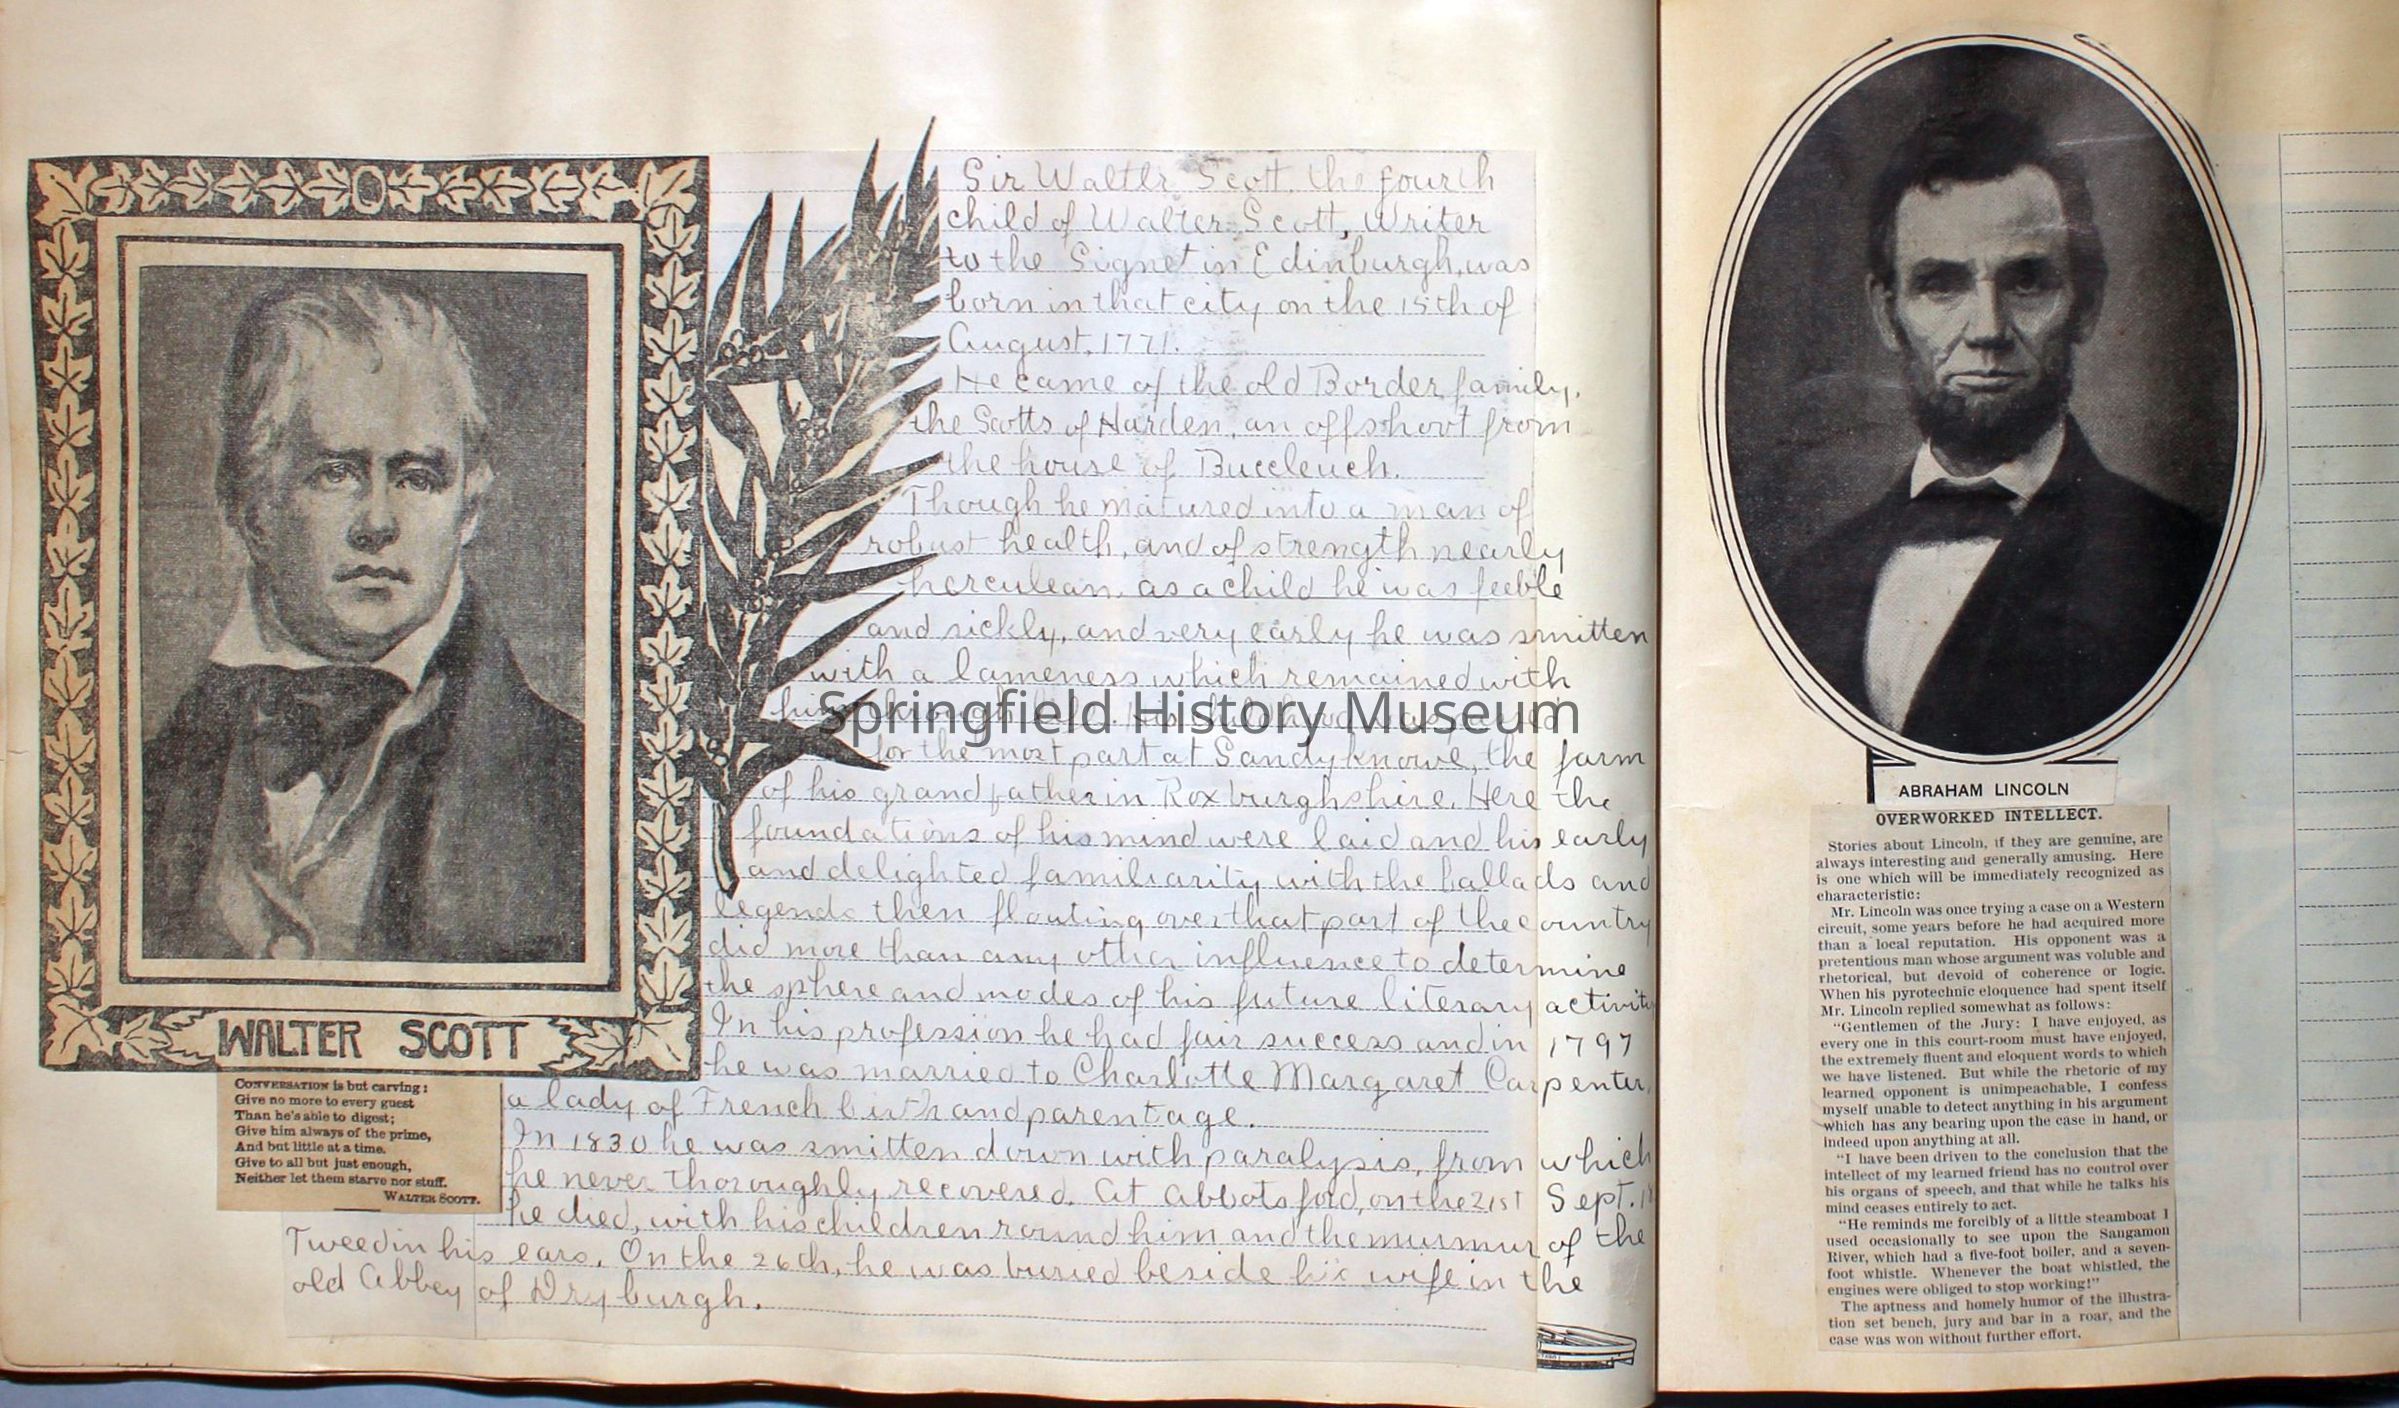 WALTER SCOTT
CONVERSATION is but carving:
Give no more to every guest
Than he's able to digest;
Give him always of the prime,
And but little at a time.
Give to all but just enough,
Neither let them starve nor stuff.
WALTER SCOTT.
Sir Walter Scott, the fourth
child of Walter Scott, Writer
to the Signet in Edinburgh, was
born in that city on the 15th of
August, 1771.
He came of the old Border family,
the Scotts of Harden, an offshoot from
the house of Buccleuch.
Though he matured into a man of
robust health, and of strength nearly
herculean, as a child he was feeble
and sickly, and very early he was smitten
with a lameness which remained with
him through life. His childhood was passed
for the most part at Sandyknowe, the farm
of his grandfather in Roxburghshire. Here the
foundations of his mind were laid and his early
and delighted familiarity with the ballads and
legends then floating over that part of the country
did more than any other influence to determine
the sphere and modes of his future literary activity
In his profession he had fair success and in 1797
he was married to Charlotte Margaret Carpenter,
a lady of French birth and parentage.
In 1830 he was smitten down with paralysis, from which
he never thoroughly recovered. At Abbotsford, on the 21st Sept. 18
he died, with his children round him and the murmur of the
Tweed in his ears. On the 26th, he was buried beside his wife in the
old Abbey of Dryburgh.
Springfield History Museum
ABRAHAM LINCOLN
OVERWORKED INTELLECT.
Stories about Lincoln, if they are genuine, are
always interesting and generally amusing. Here
is one which will be immediately recognized as
characteristic:
Mr. Lincoln was once trying a case on a Western
circuit, some years before he had acquired more
than a local reputation. His opponent was a
pretentious man whose argument was voluble and
rhetorical, but devoid of coherence or logic.
When his pyrotechnic eloquence had spent itself
Mr. Lincoln replied somewhat as follows:
"Gentlemen of the Jury: I have enjoyed, as
every one in this court-room must have enjoyed,
the extremely fluent and eloquent words to which
we have listened. But while the rhetoric of my
learned opponent is unimpeachable, I confess
myself unable to detect anything in his argument
which has any bearing upon the case in hand, or
indeed upon anything at all.
"I have been driven to the conclusion that the
intellect of my learned friend has no control over
his organs of speech, and that while he talks his
mind ceases entirely to act.
"He reminds me forcibly of a little steamboat I
used occasionally to see upon the Sangamon
River, which had a five-foot boiler, and a seven-
foot whistle. Whenever the boat whistled, the
engines were obliged to stop working!"
The aptness and homely humor of the illustra-
tion set bench, jury and bar in a roar, and the
case was won without further effort.